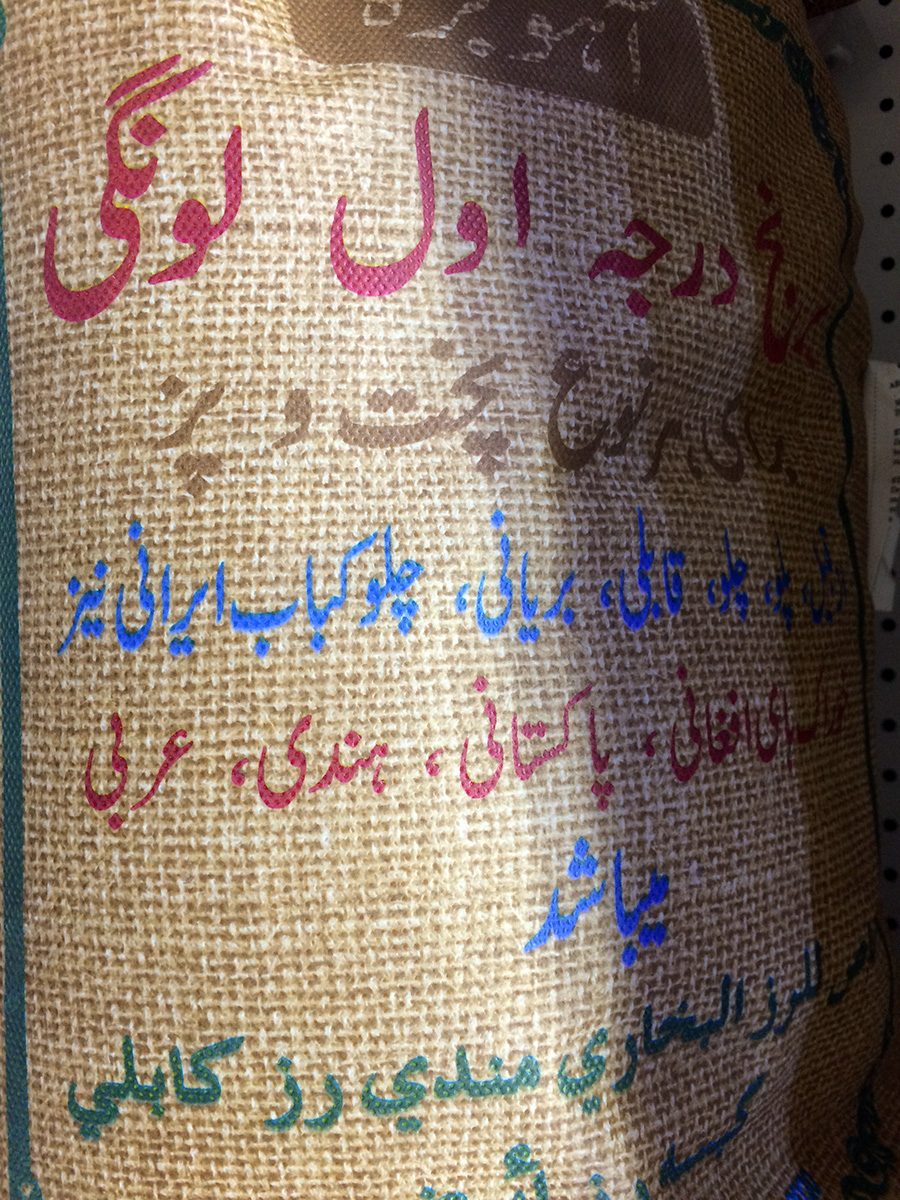 آهو بره
برنج درجه اول لونگی
برای هر نوع پخت و پز
از قبیل، پلو، چلو، قابلی، بریانی، چلوکباب ایرانی نیز
خوراک های افغانی، پاکستانی، هندی، عربی
میباشد
للرز البخاري مندي رز كابلي